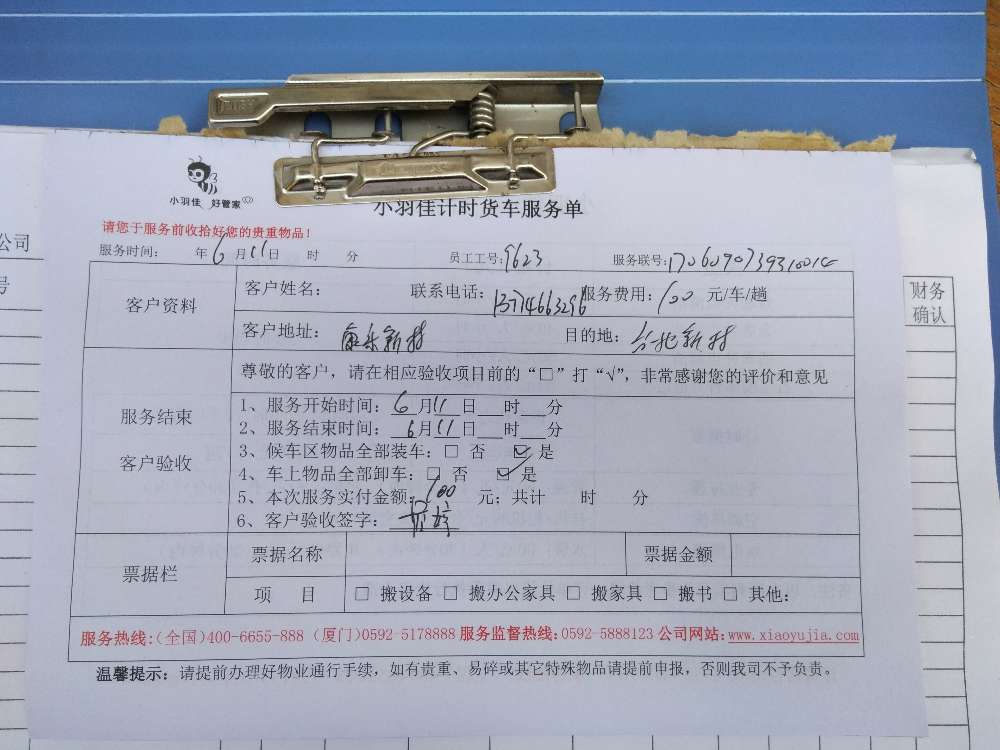 小羽佳 好管家
小羽佳计时货车服务单
请您于服务前收拾好您的贵重物品!
服务时间: 年6月11日 时 分 员工工号:9623 服务联号:
客户资料
客户姓名: 联系电话:13774663296 服务费用:100 元/车/趟
客户地址: 康乐新村 目的地: 台北新村
服务结束
客户验收
尊敬的客户，请在相应验收项目前的“□”打“√”，非常感谢您的评价和意见
1、服务开始时间: 6月11日___时___分
2、服务结束时间: 6月11日___时___分
3、候车区物品全部装车:□ 否 ☑ 是
4、车上物品全部卸车:□ 否 ☑ 是
5、本次服务实付金额:100 元;共计 时 分
6、客户验收签字:
票据栏
票据名称 票据金额
项 目 □ 搬设备 □ 搬办公家具 □ 搬家具 □ 搬书 □ 其他:
服务热线:(全国)400-6655-888 (厦门)0592-5178888 服务监督热线:0592-5888123 公司网站:www.xiaoyujia.com
温馨提示: 请提前办理好物业通行手续，如有贵重、易碎或其它特殊物品请提前申报，否则我司不予负责。
公司
号
财务
确认